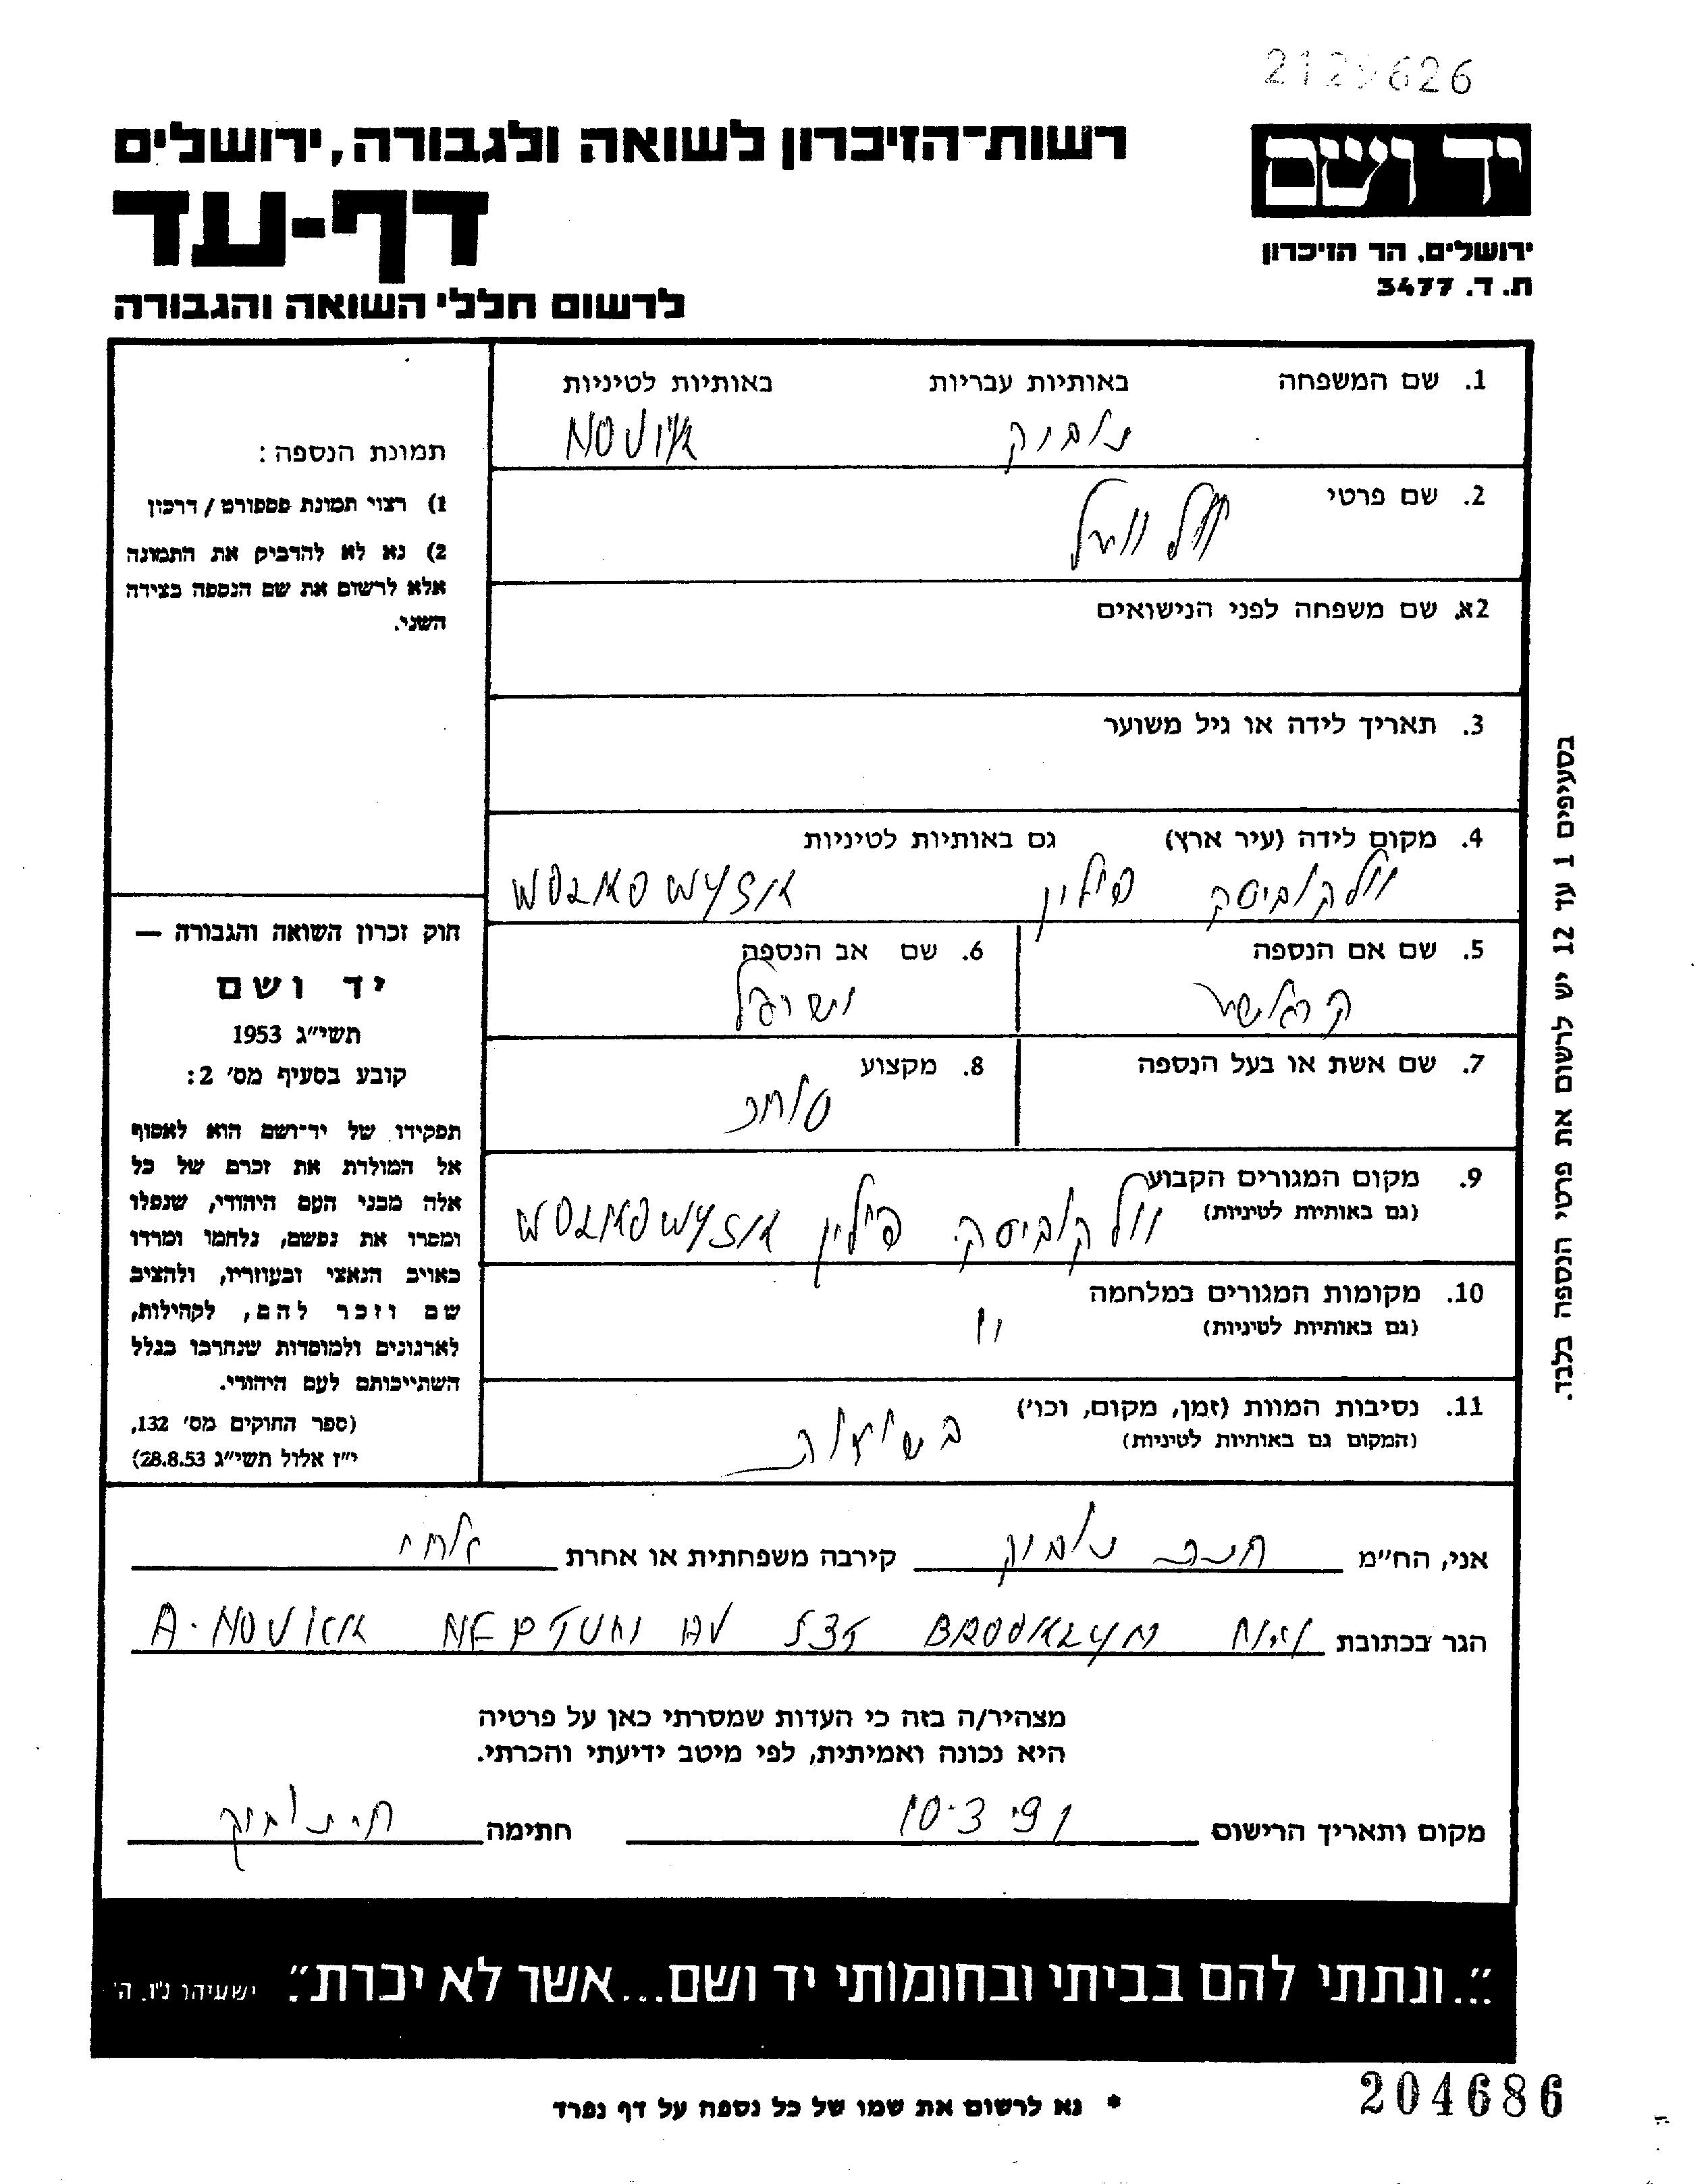 2129626
רשות־הזיכרון לשואה ולגבורה, ירושלים
יד ושם
דף-עד
ירושלים, הר הזיכרון
ת. ד. 3477
לרשום חללי השואה והגבורה
1. שם המשפחה באותיות עבריות באותיות לטיניות
נוביק NOVIK
2. שם פרטי
2א. שם משפחה לפני הנישואים
3. תאריך לידה או גיל משוער
4. מקום לידה (עיר ארץ) גם באותיות לטיניות
וולקוביסק פולין WOLKOWYSK
5. שם אם הנספה
6. שם אב הנספה
7. שם אשת או בעל הנספה
8. מקצוע
סוחר
9. מקום המגורים הקבוע
(גם באותיות לטיניות)
וולקוביסק פולין WOLKOWYSK
10. מקומות המגורים במלחמה
(גם באותיות לטיניות)
11. נסיבות המוות (זמן, מקום, וכו')
(המקום גם באותיות לטיניות)
תמונת הנספה:
1) רצוי תמונת פספורט / דרכון
2) נא לא להדביק את התמונה
אלא לרשום את שם הנספה בצידה
השני.
חוק זכרון השואה והגבורה —
יד ושם
תשי"ג 1953
קובע בסעיף מס' 2:
תפקידו של יד־ושם הוא לאסוף
אל המולדת את זכרם של כל
אלה מבני העם היהודי, שנפלו
ומסרו את נפשם, נלחמו ומרדו
באויב הנאצי ובעוזריו, ולהציב
שם וזכר להם, לקהילות,
לארגונים ולמוסדות שנחרבו בגלל
השתייכותם לעם היהודי.
(ספר החוקים מס' 132,
י"ז אלול תשי"ג 28.8.53)
בסעיפים 1 עד 12 יש לרשום את פרטי הנספה בלבד.
אני, הח"מ נוביק קירבה משפחתית או אחרת
הגר בכתובת A. NOVICK NEPTUN AV 537 BROOKLYN N.Y
מצהיר/ה בזה כי העדות שמסרתי כאן על פרטיה
היא נכונה ואמיתית, לפי מיטב ידיעתי והכרתי.
מקום ותאריך הרישום 10.3.91 חתימה נוביק
"...ונתתי להם בביתי ובחומותי יד ושם...אשר לא יכרת". ישעיהו נ"ו, ה'
* נא לרשום את שמו של כל נספה על דף נפרד
204686